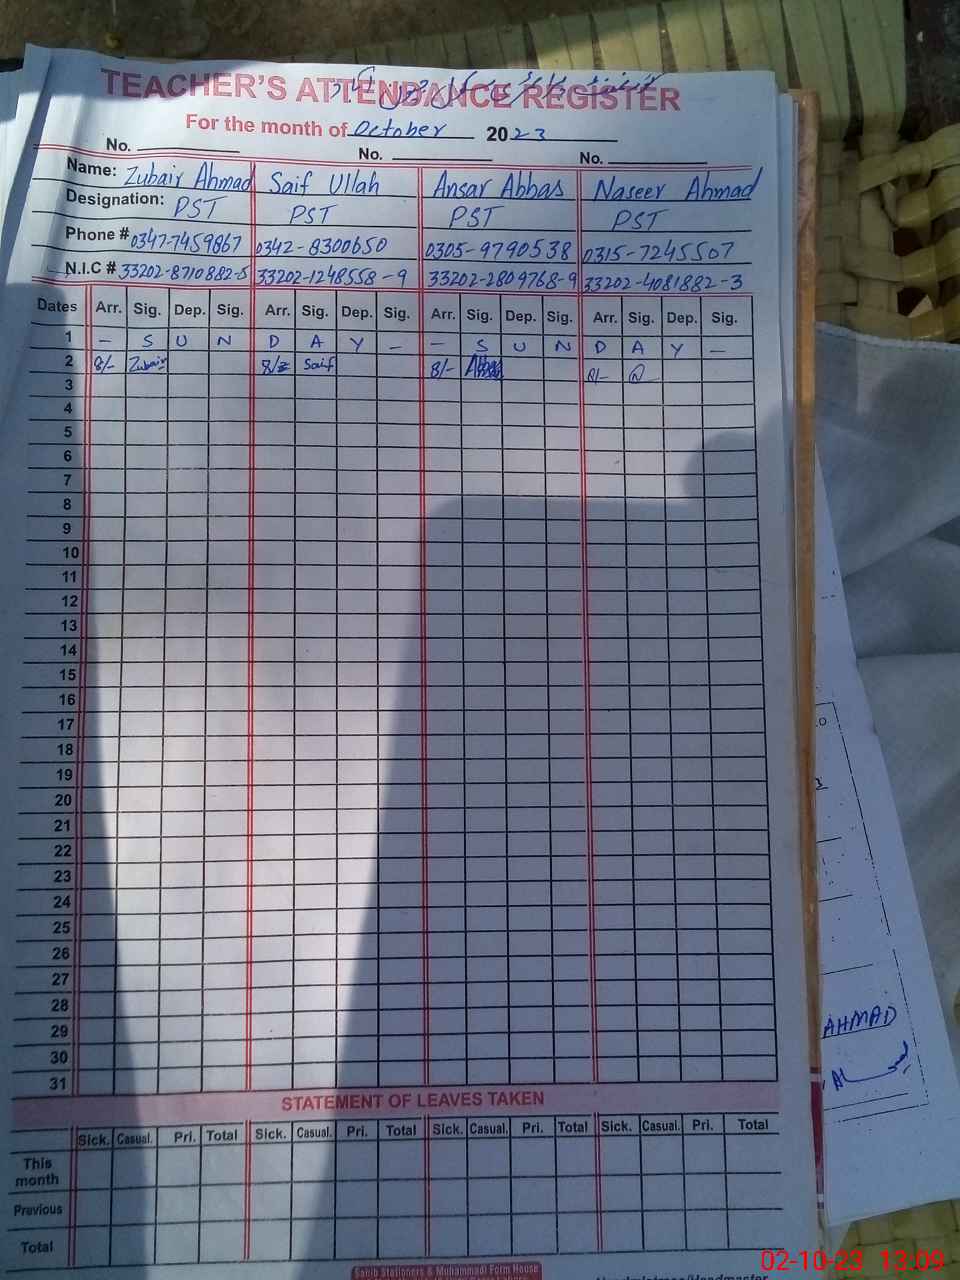 TEACHER'S ATTENDANCE REGISTER
For the month of October 2023
No. No. No.
Name: Zubair Ahmad Saif Ullah Ansar Abbas Naseer Ahmad
Designation: PST PST PST PST
Phone # 0347-7459867 0342-8300650 0305-9790538 0315-7245507
N.I.C # 33202-8710882-5 33202-1248558-9 33202-2809768-9 33202-4081882-3
Dates Arr. Sig. Dep. Sig. Arr. Sig. Dep. Sig. Arr. Sig. Dep. Sig. Arr. Sig. Dep. Sig.
1 – S U N D A Y – – S U N D A Y –
2 8/- Zubair Saif 8/- Abbas
3
4
5
6
7
8
9
10
11
12
13
14
15
16
17
18
19
20
21
22
23
24
25
26
27
28
29
30
31
STATEMENT OF LEAVES TAKEN
Sick. Casual. Pri. Total Sick. Casual. Pri. Total Sick. Casual. Pri. Total Sick. Casual. Pri. Total
This month
Previous
Total
Sahib Stationers & Muhammadi Form House
AHMAD
02-10-23 13:09